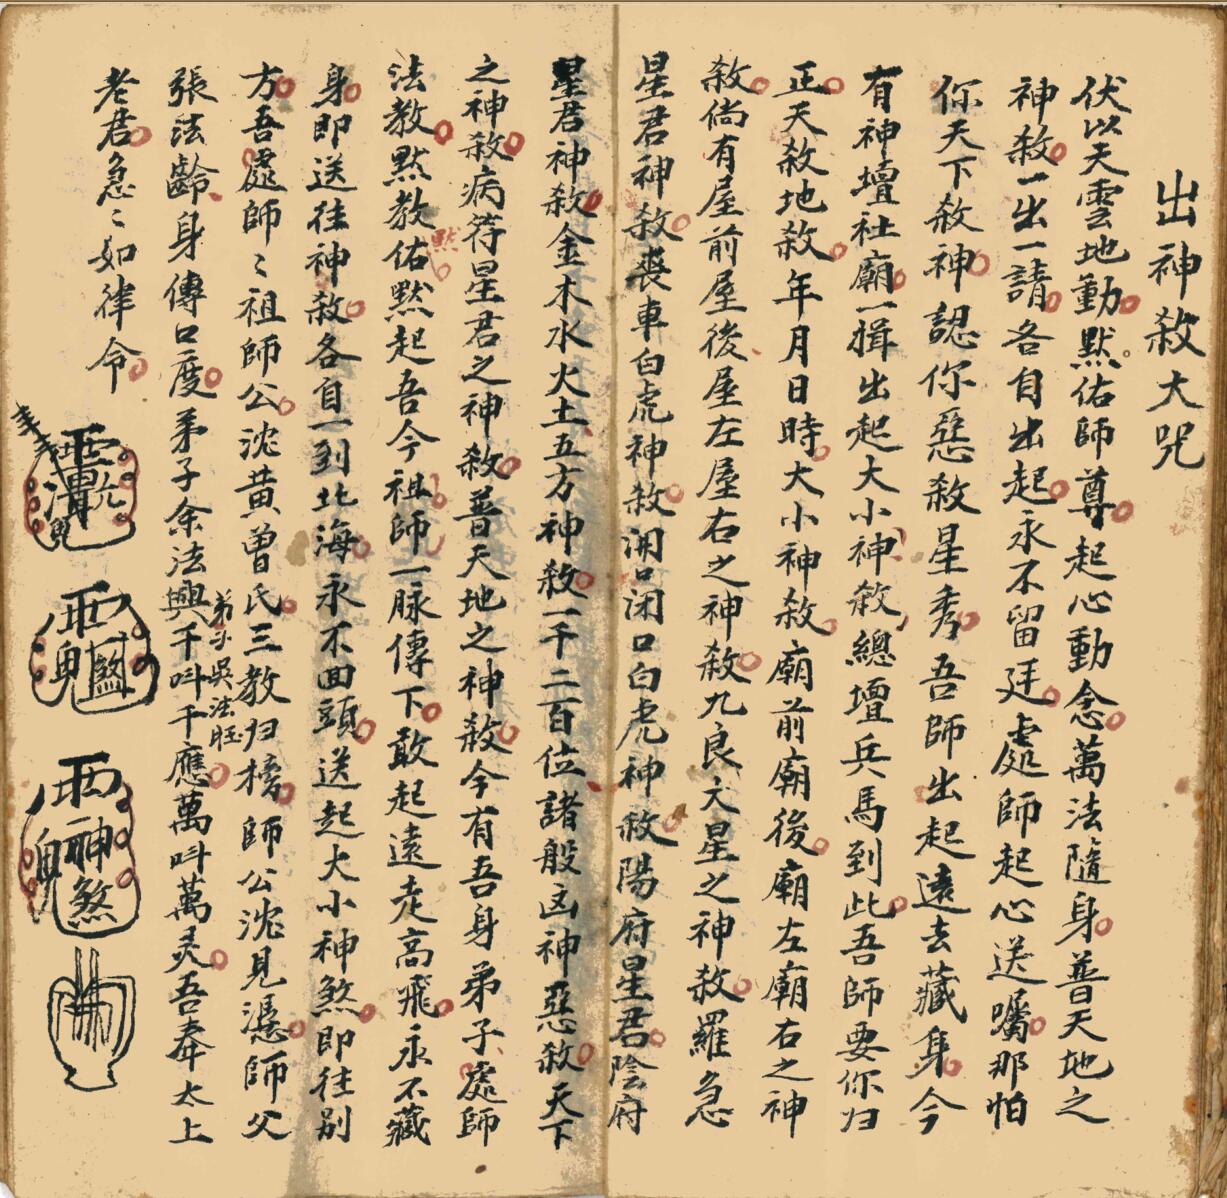 出神殺大咒
伏以天雲地動默佑師尊起心動念萬法隨身普天地之
神殺一出一請各自出起永不留廷處師起心送囑那怕
你天下殺神認你惡殺星秀吾師出起遠去藏身今
有神壇社廟一揖出起大小神殺總壇兵馬到此吾師要你归
正天殺地殺年月日時大小神殺廟前廟後廟左廟右之神
殺倘有屋前屋後屋左屋右之神殺九良大星之神殺羅急
星君神殺喪車白虎神殺開口闭口白虎神殺陽府星君陰府
星君神殺金木水火土五方神殺一千二百位諸般凶神惡殺天下
之神殺病符星君之神殺普天地之神殺今有吾身弟子處師
法教默教佑默起吾今祖師一脉傳下敢起遠走高飛永不藏
默
身即送往神殺各自一到北海永不回頭送起大小神煞即往别
方吾處師〻祖師公沈黄曾氏三教归榜師公沈見憑師父
弟子吳法旺
張法齡身傳口度弟子余法興千叫千應萬叫萬灵吾奉太上
老君急〻如律令
神煞
佛